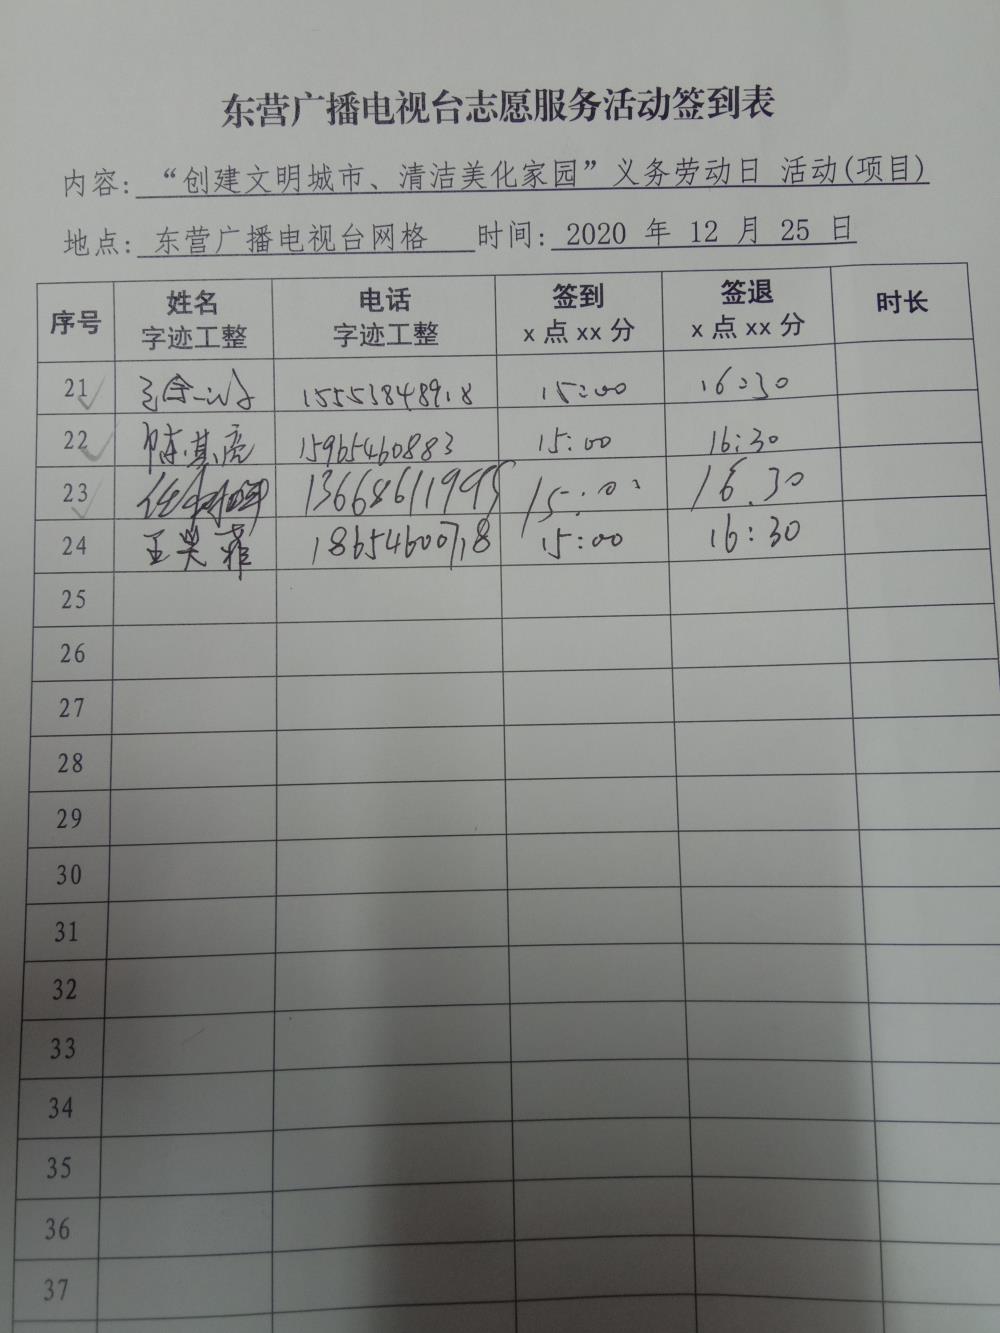 东营广播电视台志愿服务活动签到表
内容: “创建文明城市、清洁美化家园”义务劳动日 活动(项目)
地点: 东营广播电视台网格 时间: 2020 年 12 月 25 日
序号 姓名 电话 签到 签退 时长
字迹工整 字迹工整 x 点 xx 分 x 点 xx 分
21 15:00 16:30
22 陈其亮 15965460883 15:00 16:30
23 13668611995 15:00 16.30
24 王昊 18654600718 15:00 16:30
25
26
27
28
29
30
31
32
33
34
35
36
37